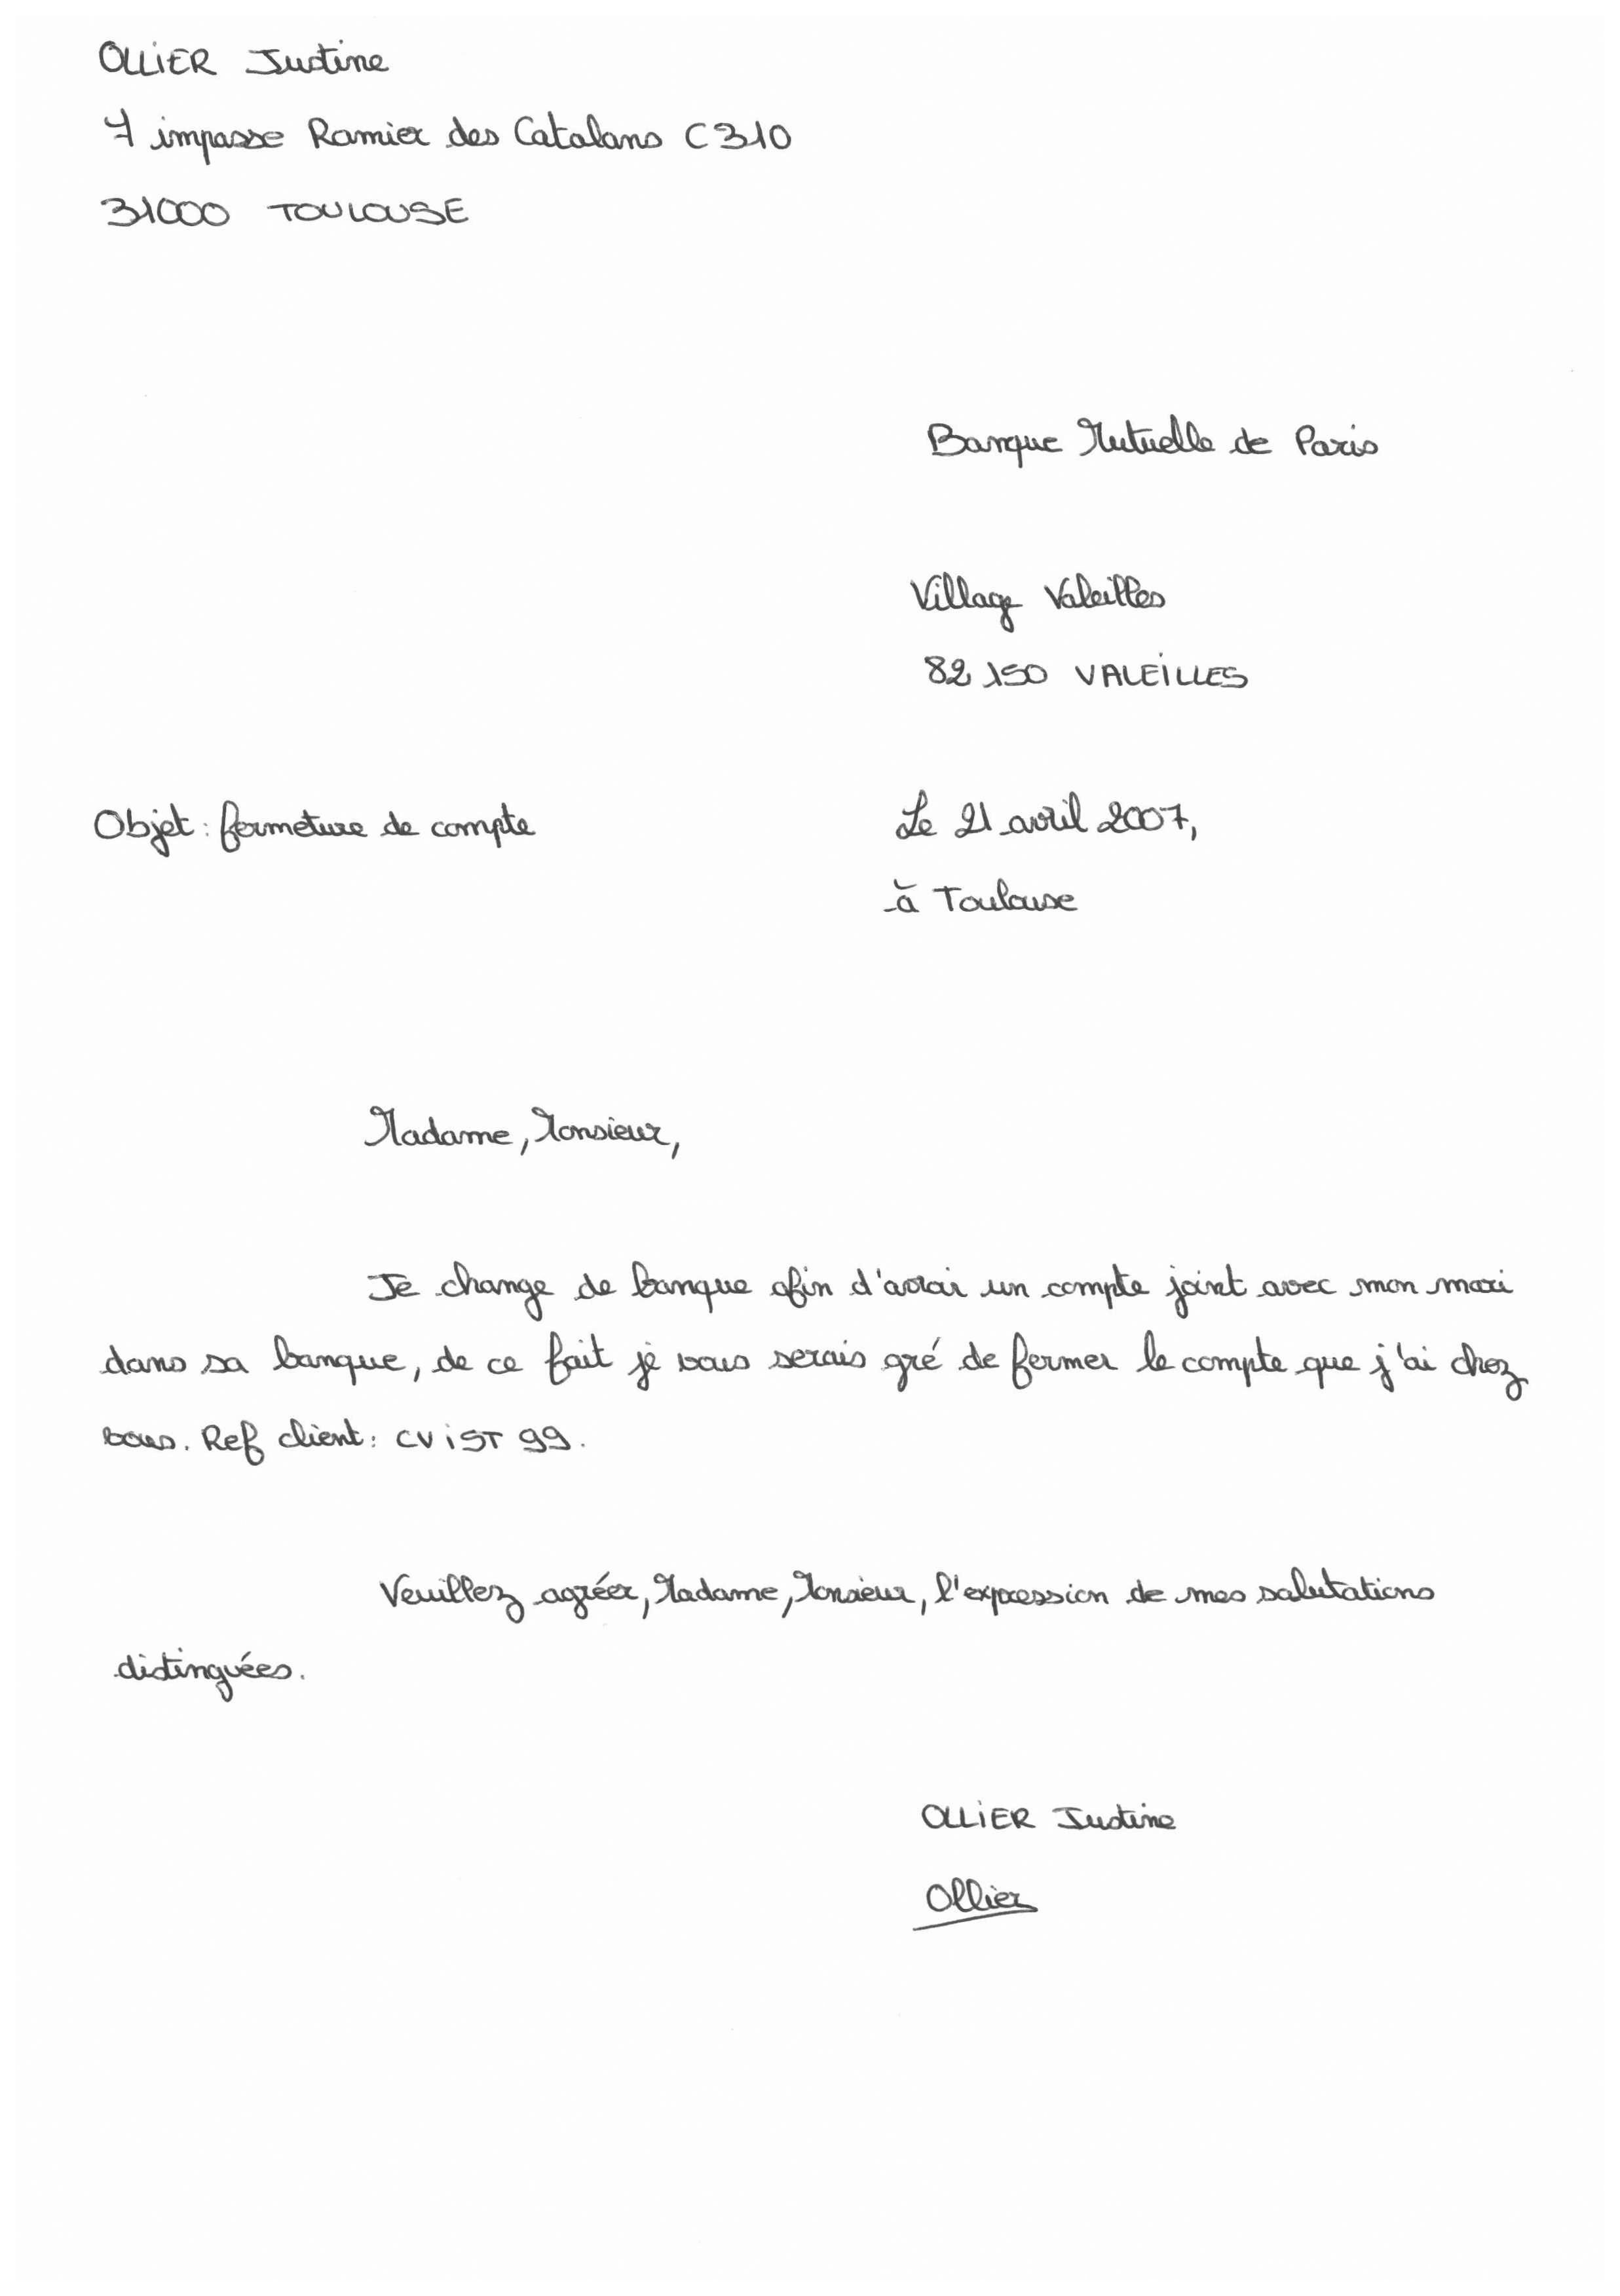 OLLIER Justine
7 impasse Ramier des Catalans C310
31000 TOULOUSE
Banque Mutuelle de Paris
Village Valeilles
82150 VALEILLES
Objet : fermeture de compte
Le 21 avril 2007,
à Toulouse
Madame, Monsieur,
Je change de banque afin d'avoir un compte joint avec mon mari
dans sa banque, de ce fait je vous serais gré de fermer le compte que j'ai chez
vous. Ref client : CVIST99.
Veuillez agréer, Madame, Monsieur, l'expression de mes salutations
distinguées.
OLLIER Justine
Ollier